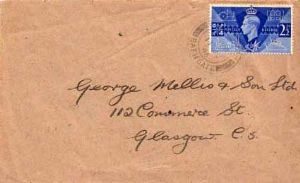 George Mellis & Son Ltd.
112 Commerce St.
Glasgow. C.5.
2½